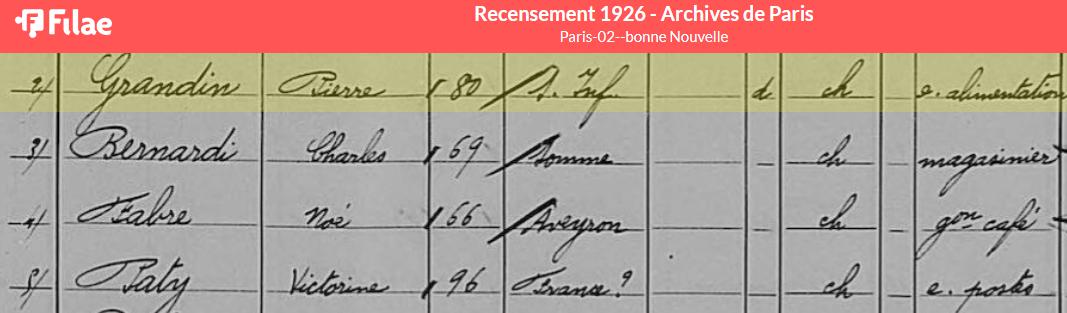 Filae
Recensement 1926 - Archives de Paris
Paris-02--bonne Nouvelle
2/ Grandin Pierre 180 S. Inf. d ch e. alimentation
3/ Bernardi Charles 169 Somme ch magasinier
4/ Fabre Noé 166 Aveyron ch gon café
5/ Paty Victorine 196 France? ch e. postes